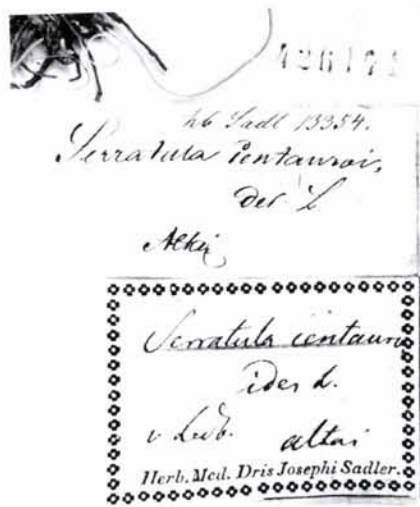 hb Sadl 13354.
Serratula Centauroi,
des L
Altai
Serratula centauro
ides L.
v. Ledb. altai
Herb. Med. Dris Josephi Sadler.